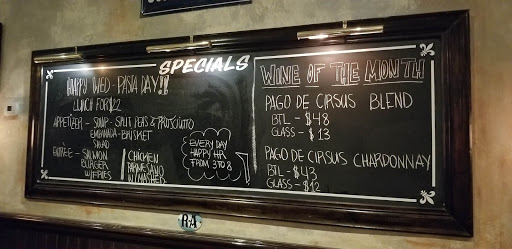 SPECIALS
HAPPY WED - PASTA DAY!!
LUNCH FOR $22
APPETIZER - SOUP - SPLIT PEAS & PROSCIUTTO
EMPANADA - BRISKET
SALAD
ENTRÉE - SALMON
BURGER
W/FRIES
CHICKEN
PARMESANO
W/MASHED
EVERY DAY
HAPPY HR
FROM 3 TO 8
WINE OF THE MONTH
PAGO DE CIRSUS BLEND
BTL - $48
GLASS - $13
PAGO DE CIRSUS CHARDONNAY
BTL - $43
GLASS - $12